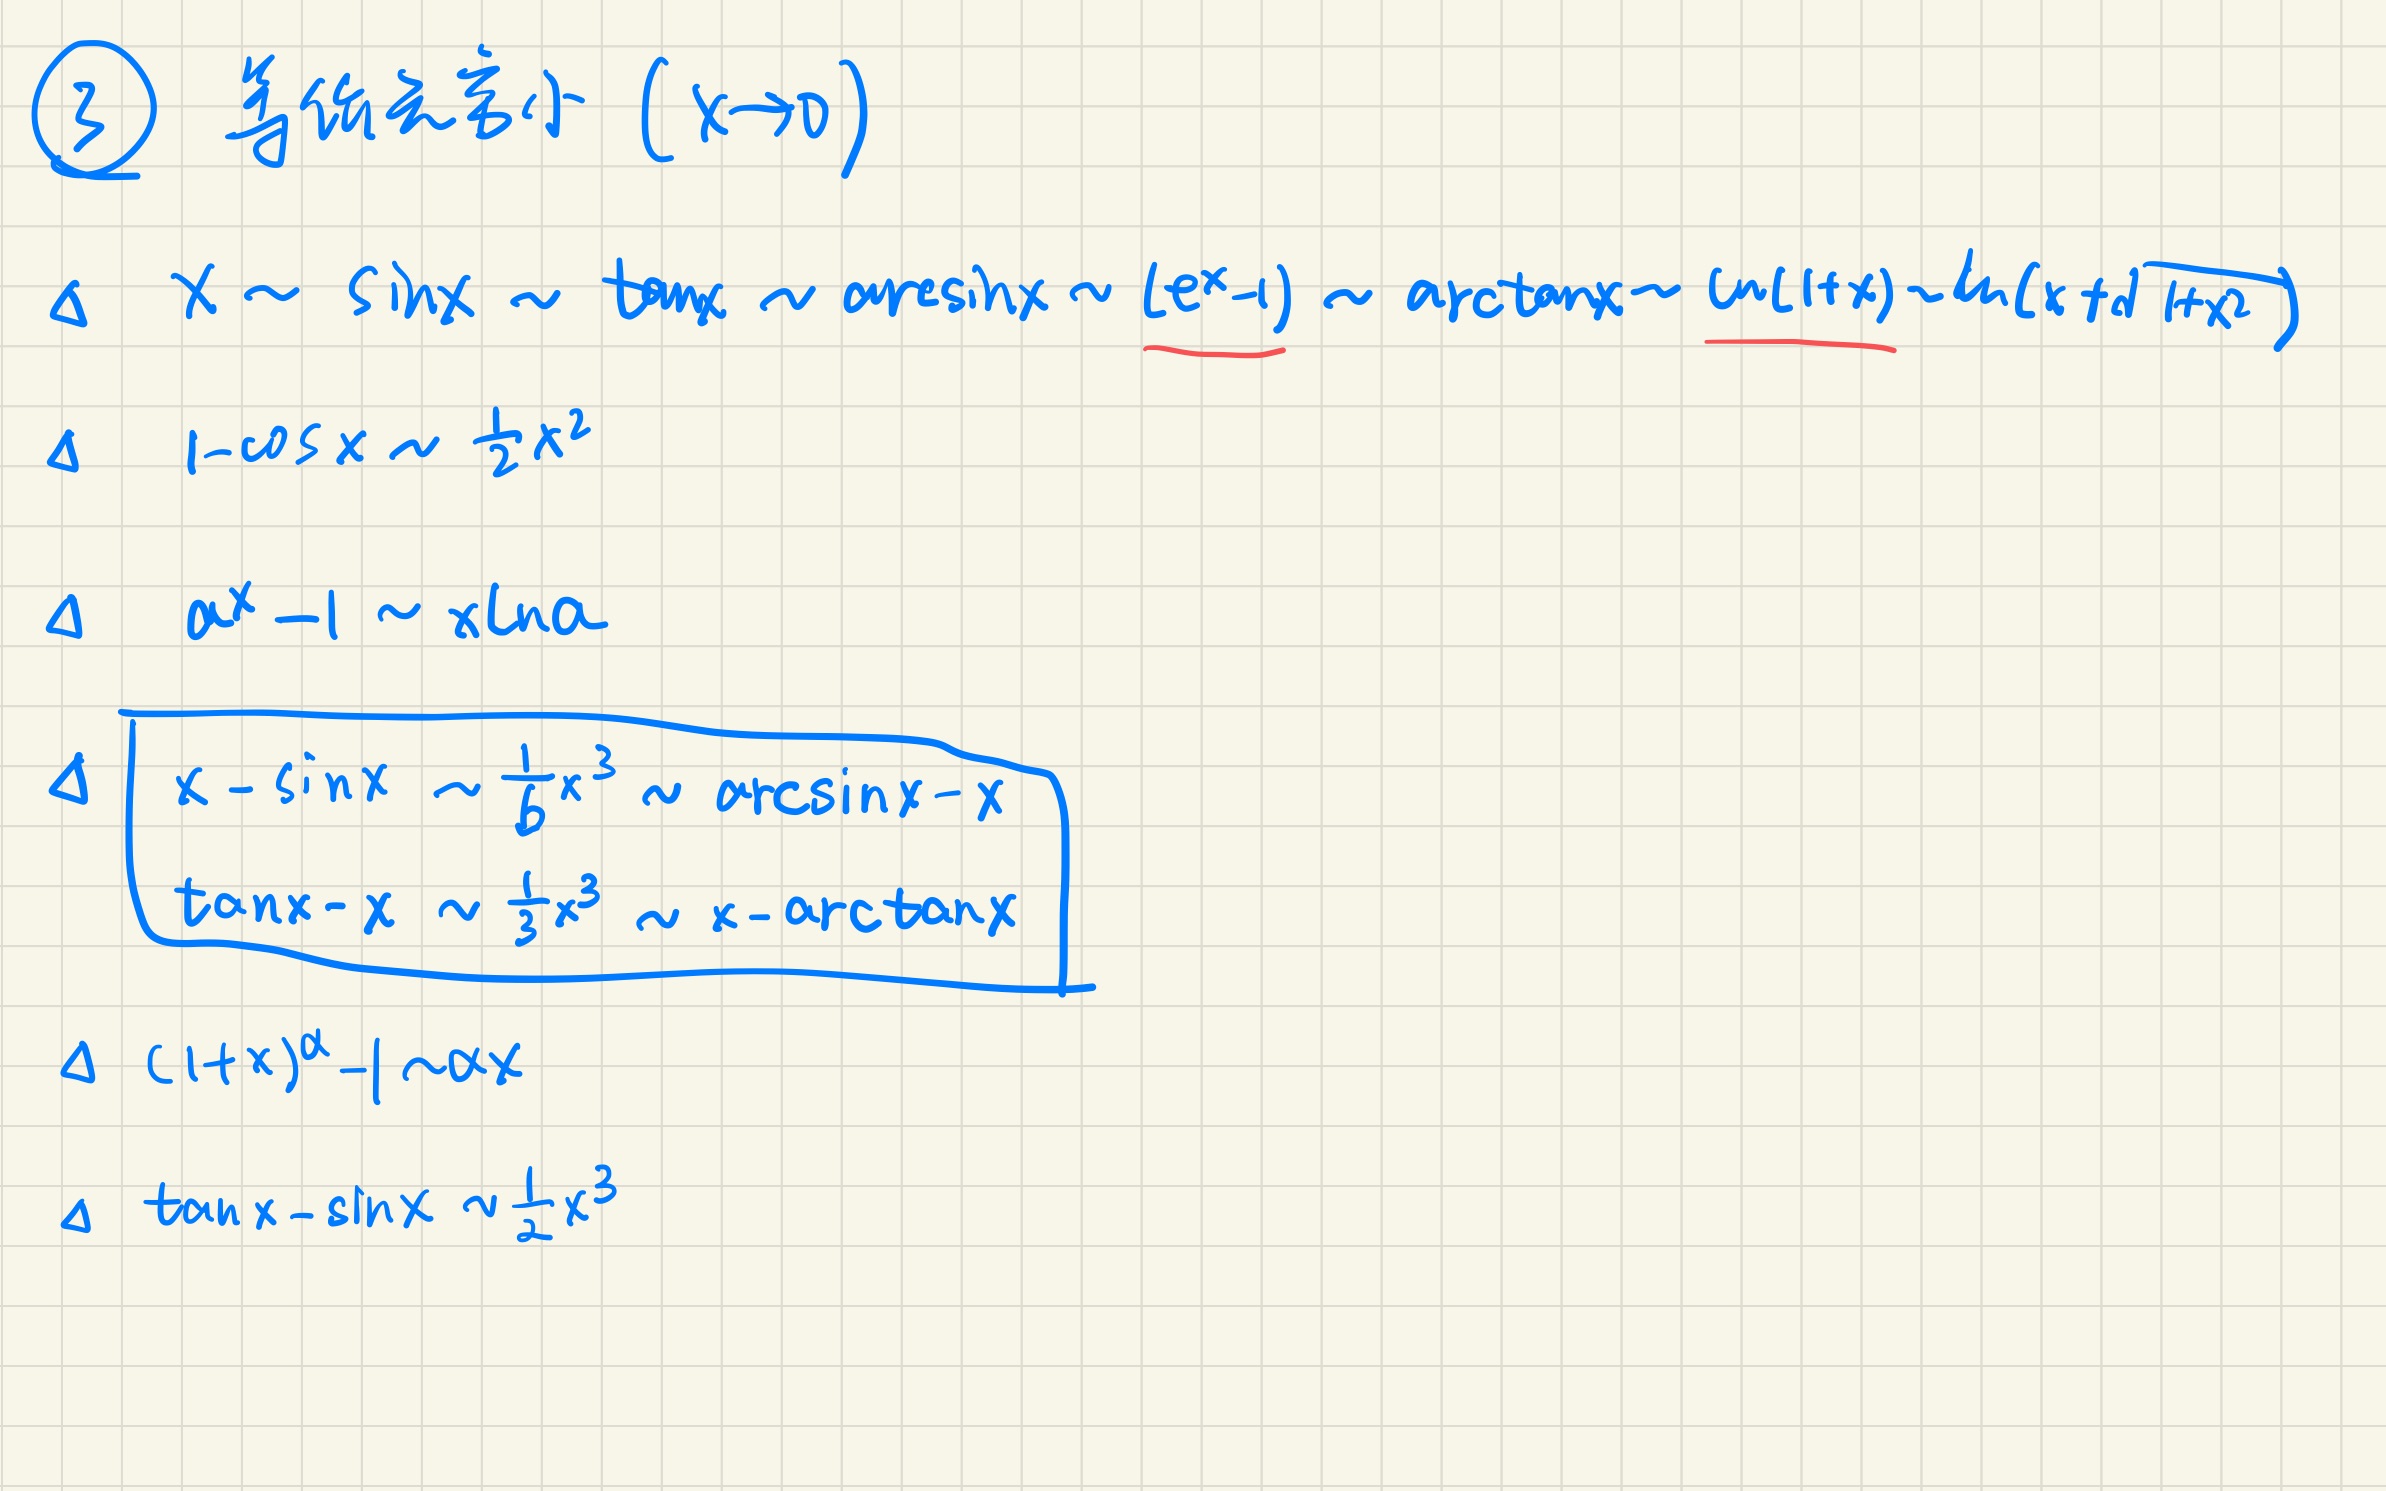 ③ 等价无穷小 (x→0)
△ x ~ sinx ~ tanx ~ arcsinx ~ (eˣ-1) ~ arctanx ~ ln(1+x) ~ ln(x+√(1+x²))
△ 1-cosx ~ 1/2 x²
△ aˣ-1 ~ xlna
△ x-sinx ~ 1/6 x³ ~ arcsinx-x
tanx-x ~ 1/3 x³ ~ x-arctanx
△ (1+x)^α -1 ~ αx
△ tanx-sinx ~ 1/2 x³